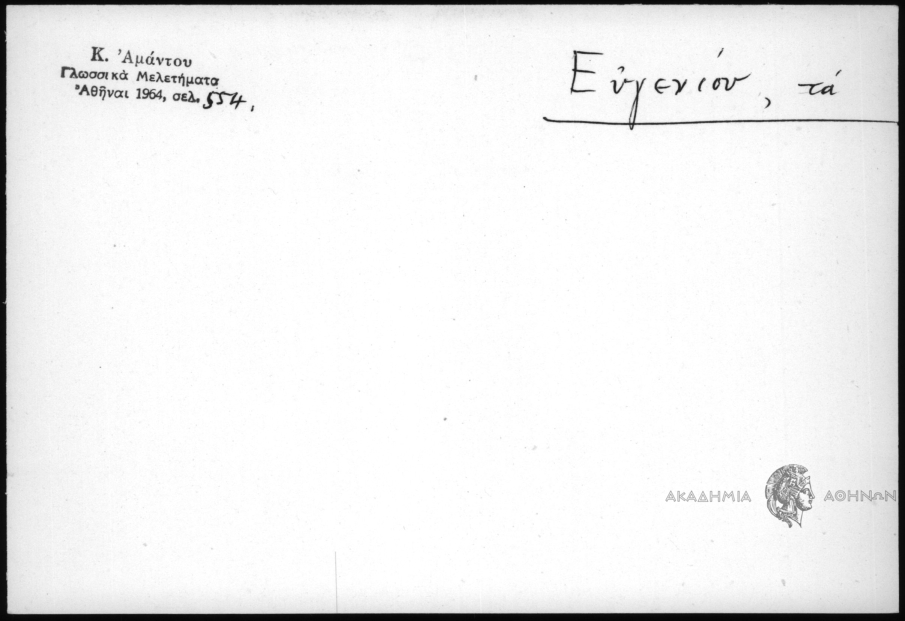 Κ. Ἀμάντου
Γλωσσικὰ Μελετήματα
Ἀθῆναι 1964, σελ. 554.
Εὐγενίου, τά
ΑΚΑΔΗΜΙΑ ΑΘΗΝΩΝ